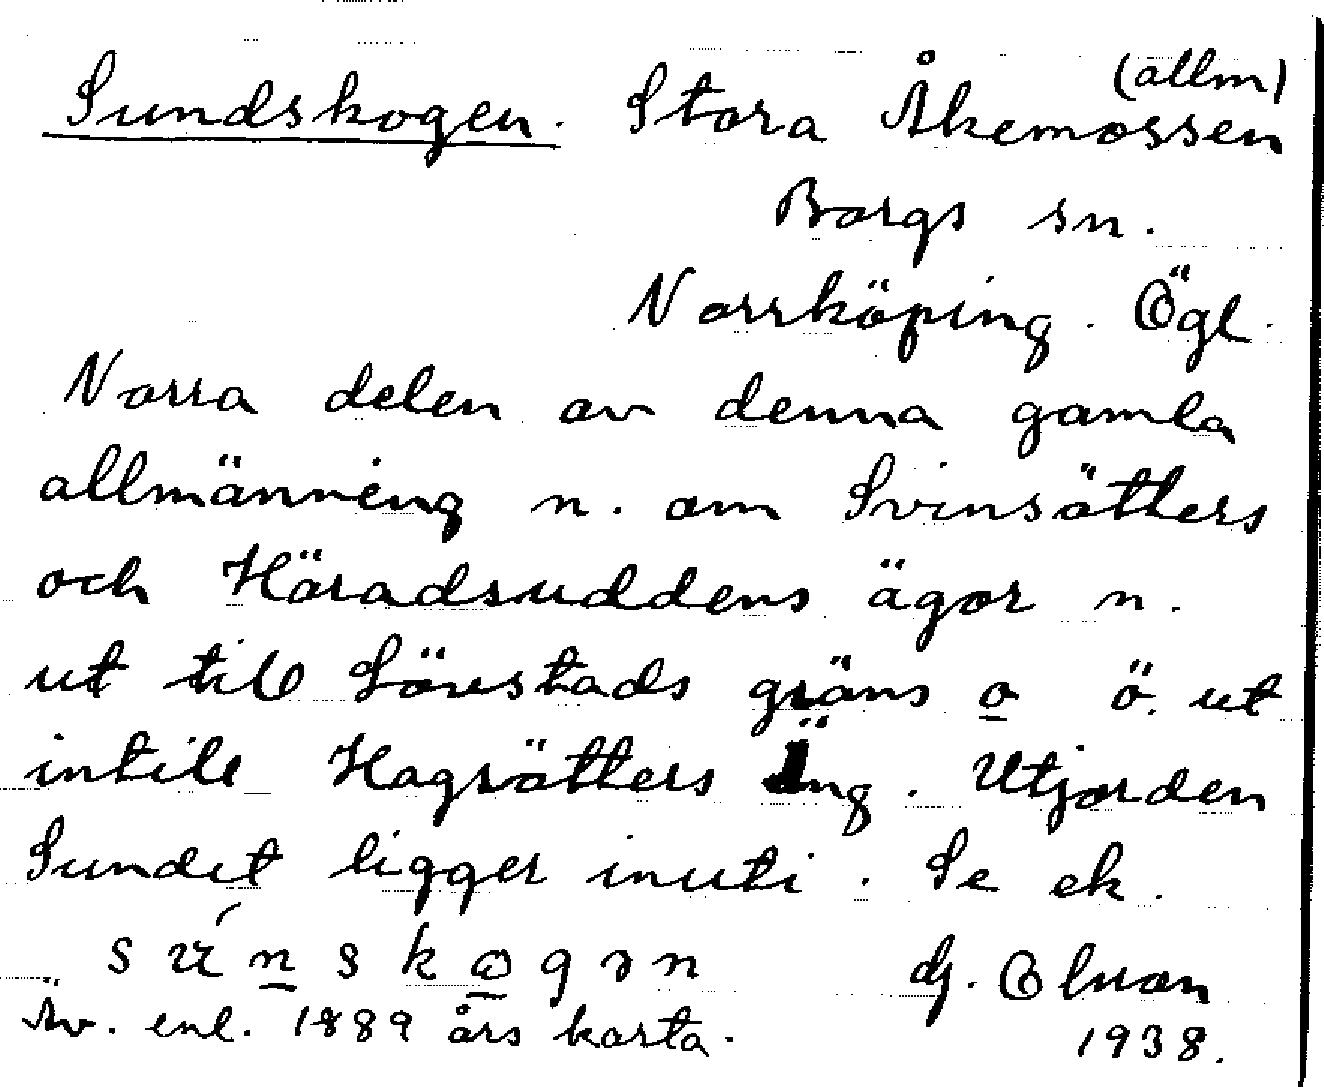 Sundskogen. Stora Åkemossen (allm)
Borgs sn.
Norrköping. Ögl.
Norra delen av denna gamla
allmänning n. om Svinsätters
och Häradsuddens ägor n.
ut till Lövstads gräns o ö. ut
intill Hagsätters Äng. Utjorden
Sundet ligger inuti. Se ek.
súnskogən
Äv. enl. 1889 års karta.
1938.